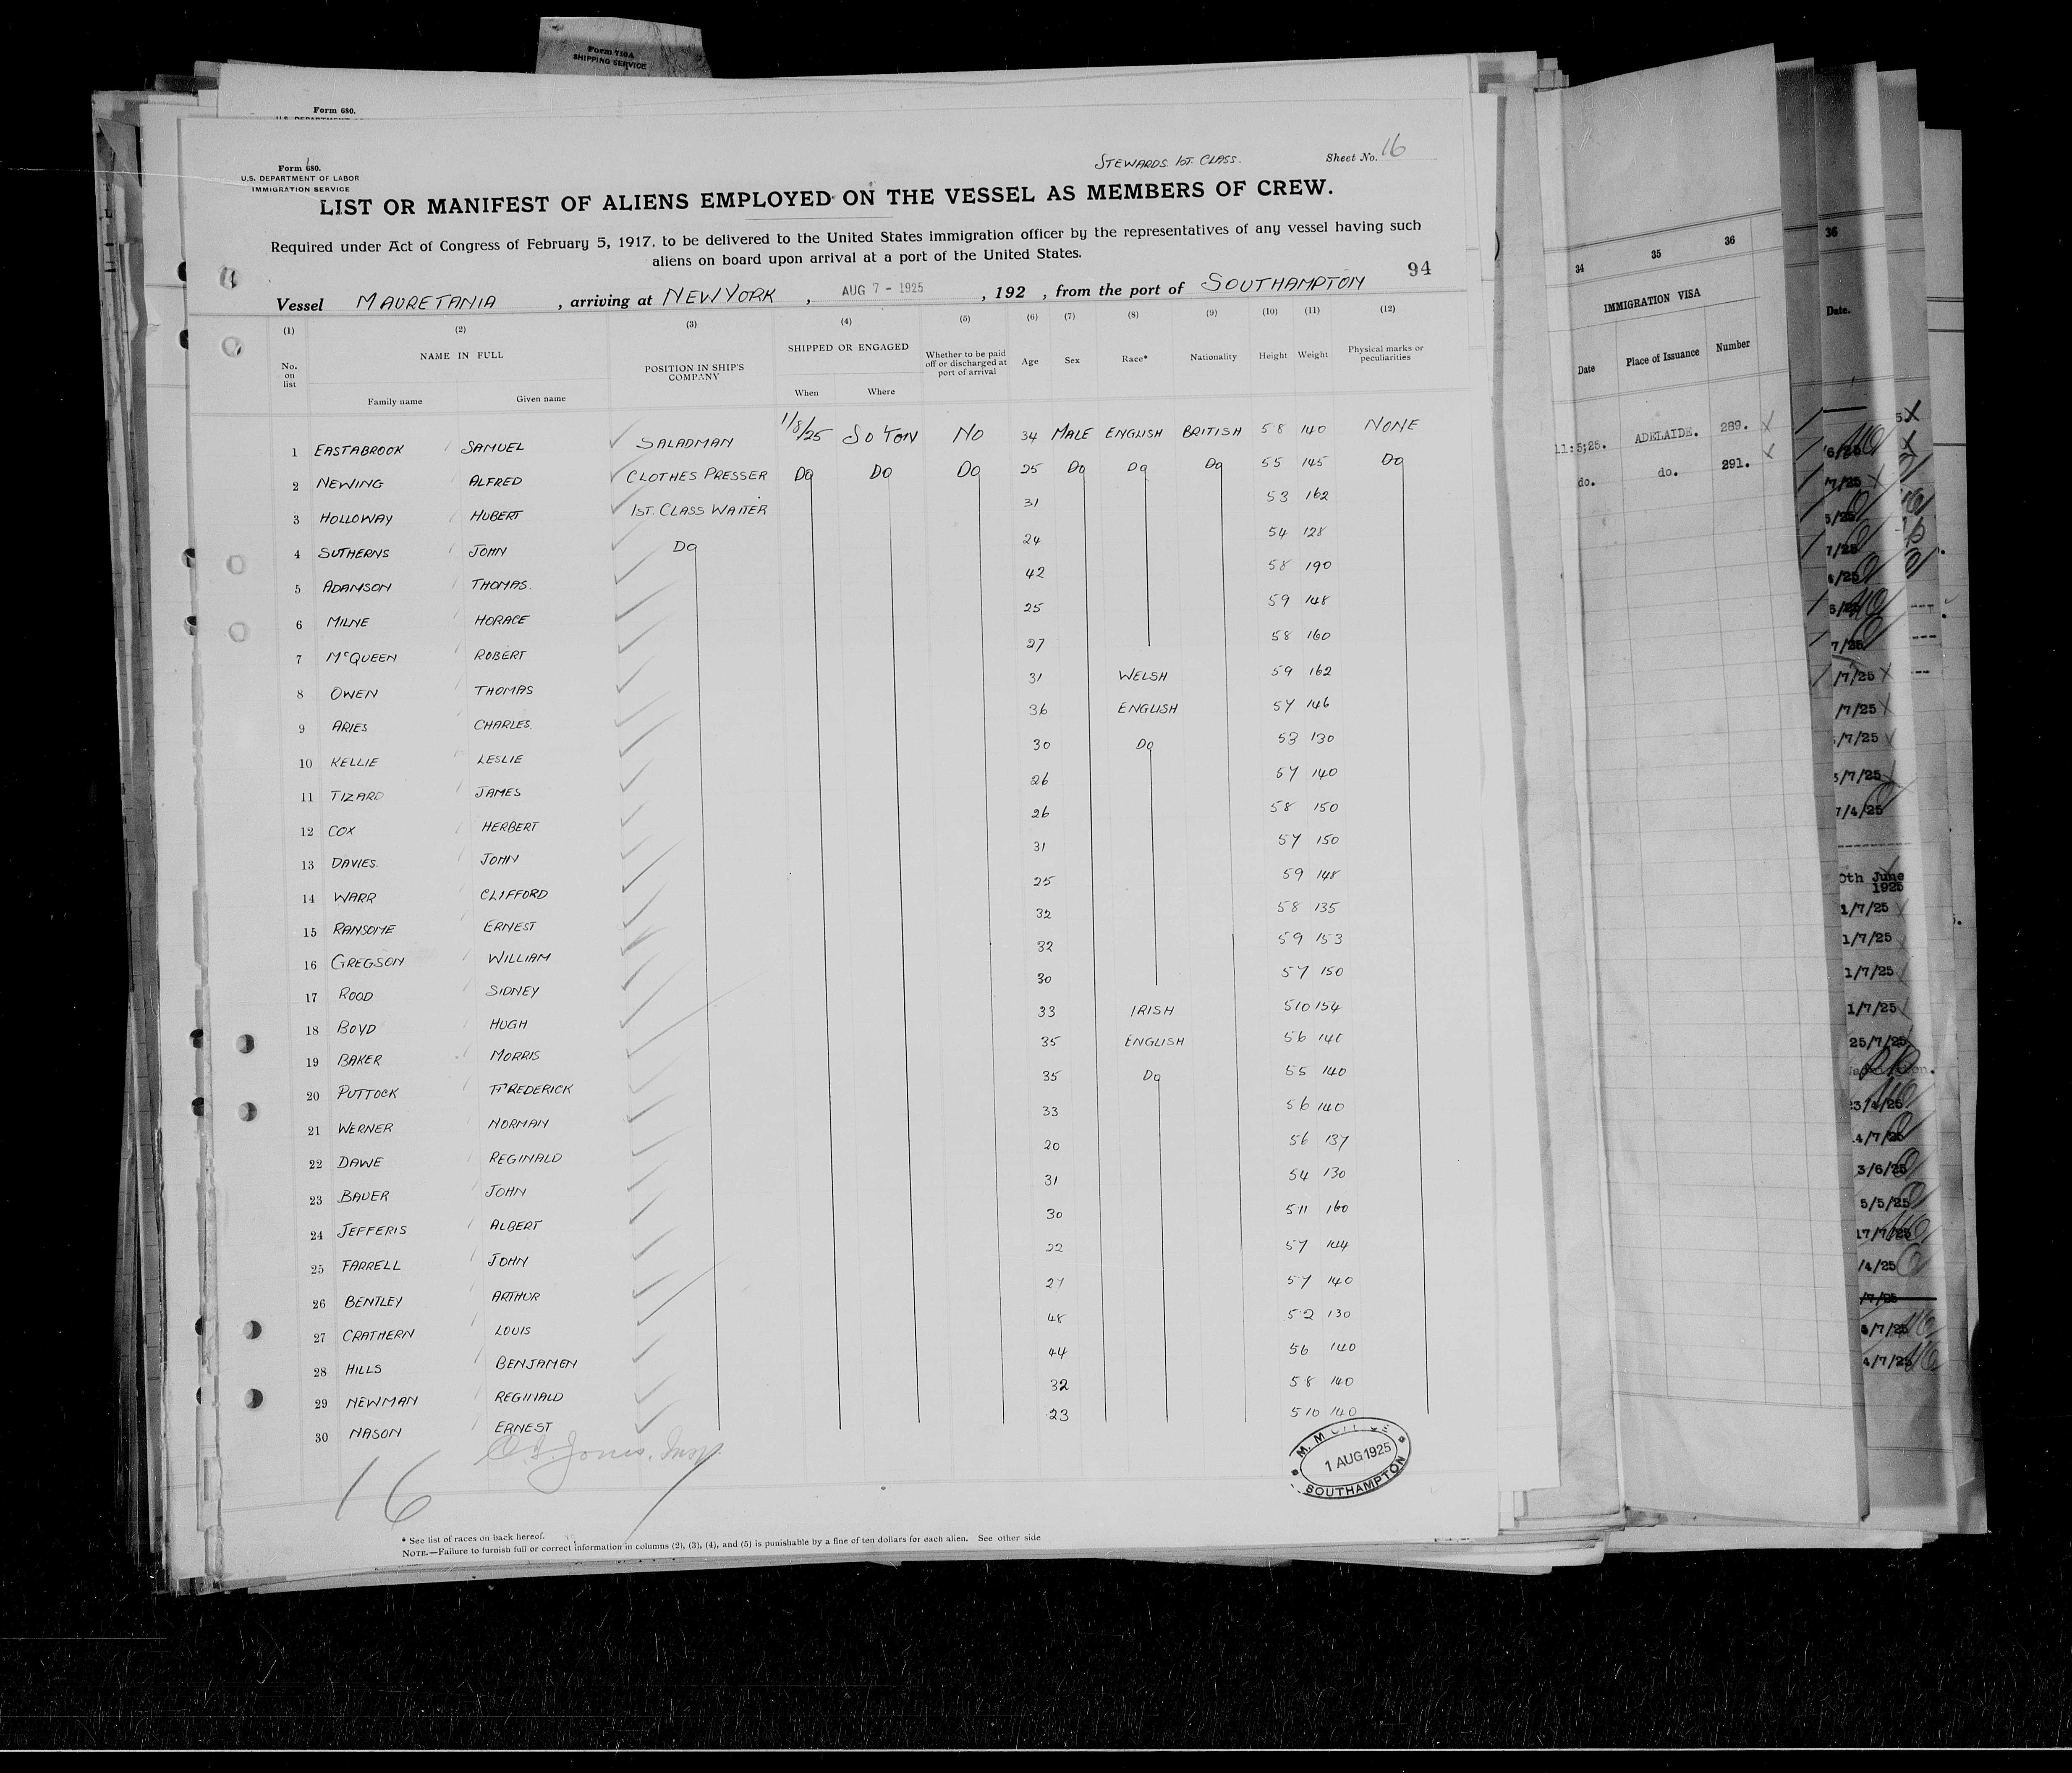 Form 719A
SHIPPING SERVICE
Form 680.
Form 680.
U.S. DEPARTMENT OF LABOR
IMMIGRATION SERVICE
STEWARDS. 1ST. CLASS.
Sheet No. 16
LIST OR MANIFEST OF ALIENS EMPLOYED ON THE VESSEL AS MEMBERS OF CREW.
Required under Act of Congress of February 5, 1917, to be delivered to the United States immigration officer by the representatives of any vessel having such
aliens on board upon arrival at a port of the United States.
94
Vessel MAURETANIA , arriving at NEW YORK , AUG 7 - 1925 , 192 , from the port of SOUTHAMPTON
(1) (2) (3) (4) (5) (6) (7) (8) (9) (10) (11) (12)
No. on list NAME IN FULL POSITION IN SHIP'S COMPANY SHIPPED OR ENGAGED Whether to be paid off or discharged at port of arrival Age Sex Race* Nationality Height Weight Physical marks or peculiarities
Family name Given name When Where
1 EASTABROOK SAMUEL SALADMAN 1/8/25 SO'TON NO 34 MALE ENGLISH BRITISH 5 8 140 NONE
2 NEWING ALFRED CLOTHES PRESSER DO DO DO 25 DO DO DO 5 5 145 DO
3 HOLLOWAY HUBERT 1ST. CLASS WAITER 31 5 3 162
4 SUTHERNS JOHN DO 24 5 4 128
5 ADAMSON THOMAS. 42 5 8 190
6 MILNE HORACE 25 5 9 148
7 McQUEEN ROBERT 27 5 8 160
8 OWEN THOMAS 31 WELSH 5 9 162
9 ARIES CHARLES. 36 ENGLISH 5 7 146
10 KELLIE LESLIE 30 DO 5 3 130
11 TIZARD JAMES 26 5 7 140
12 COX HERBERT 26 5 8 150
13 DAVIES. JOHN 31 5 7 150
14 WARR CLIFFORD 25 5 9 148
15 RANSOME ERNEST 32 5 8 135
16 GREGSON WILLIAM 32 5 9 153
17 ROOD SIDNEY 30 5 7 150
18 BOYD HUGH 33 IRISH 5 10 154
19 BAKER MORRIS 35 ENGLISH 5 6 140
20 PUTTOCK FREDERICK 35 DO 5 5 140
21 WERNER NORMAN 33 5 6 140
22 DAWE REGINALD 20 5 6 137
23 BAUER JOHN 31 5 4 130
24 JEFFERIS ALBERT 30 5 11 160
25 FARRELL JOHN 22 5 7 144
26 BENTLEY ARTHUR 27 5 7 140
27 CRATHERN LOUIS 48 5 2 130
28 HILLS BENJAMEN 44 5 6 140
29 NEWMAN REGINALD 32 5 8 140
30 NASON ERNEST 23 5 10 140
Jones. Insp.
16
1 AUG 1925
SOUTHAMPTON
* See list of races on back hereof.
NOTE.—Failure to furnish full or correct information in columns (2), (3), (4), and (5) is punishable by a fine of ten dollars for each alien. See other side
34 35 36
IMMIGRATION VISA
Date Place of Issuance Number
11:5;25. ADELAIDE. 289.
do. do. 291.
36
Date.
/7/25
/7/25
/7/25
7/4/25
0th June
1925
1/7/25
1/7/25
1/7/25
1/7/25
25/7/25
3/6/25
5/5/25
17/7/25
/4/25
4/7/25